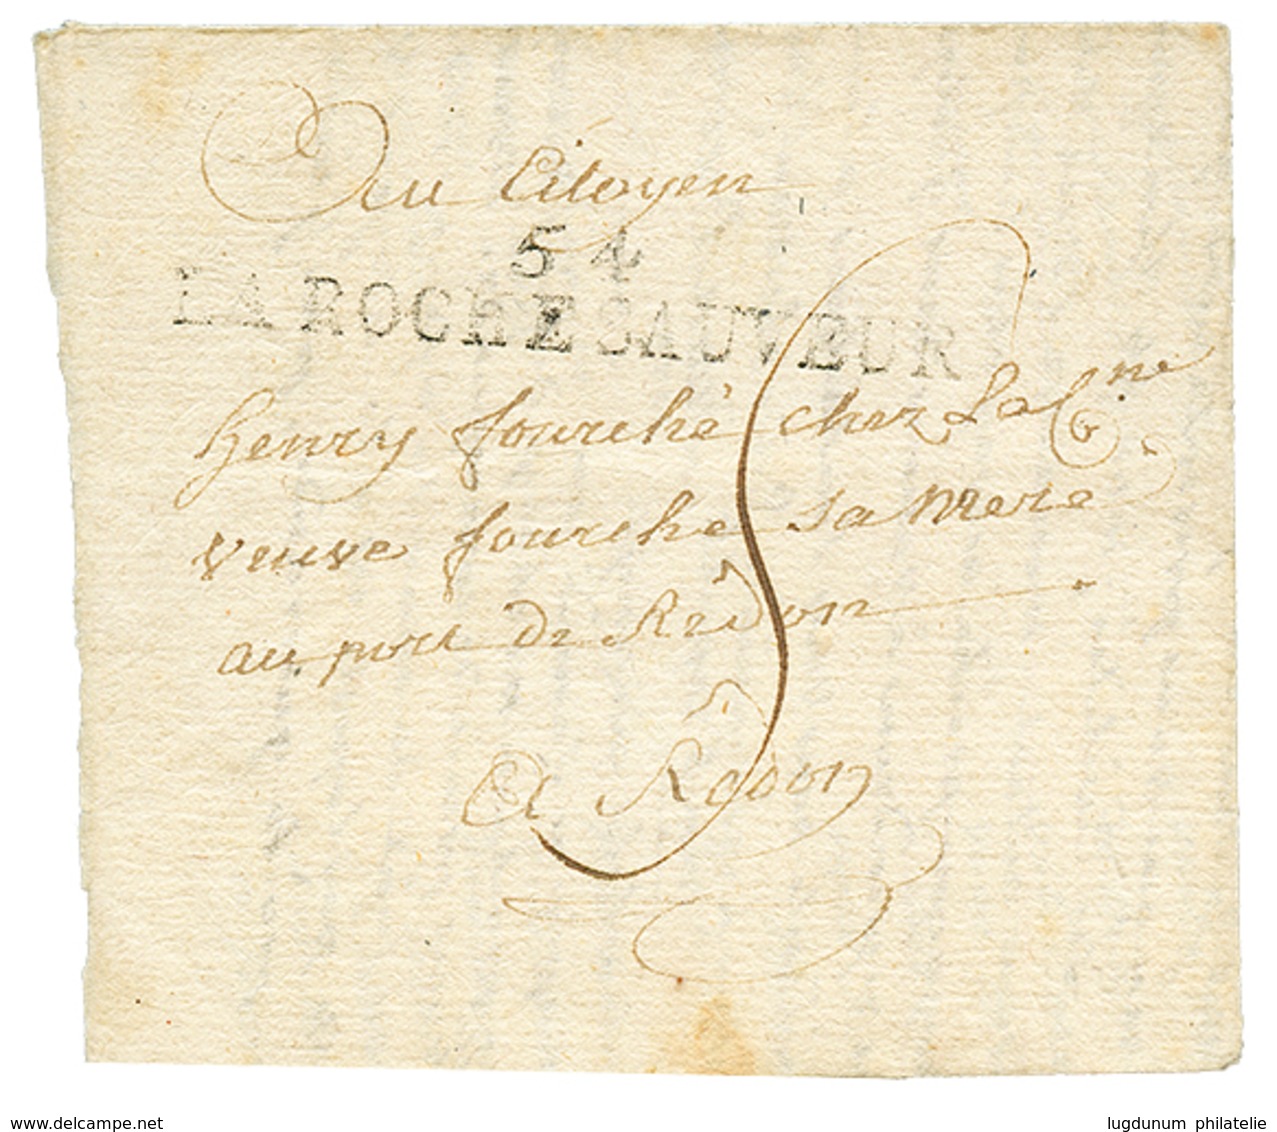 Au Citoyen
54
LA ROCHE SAUVEUR
henry fourché chez La C.ne
veuve fourche sa mere
au port de Redon
A Redon
www.delcampe.net
lugdunum philatelie